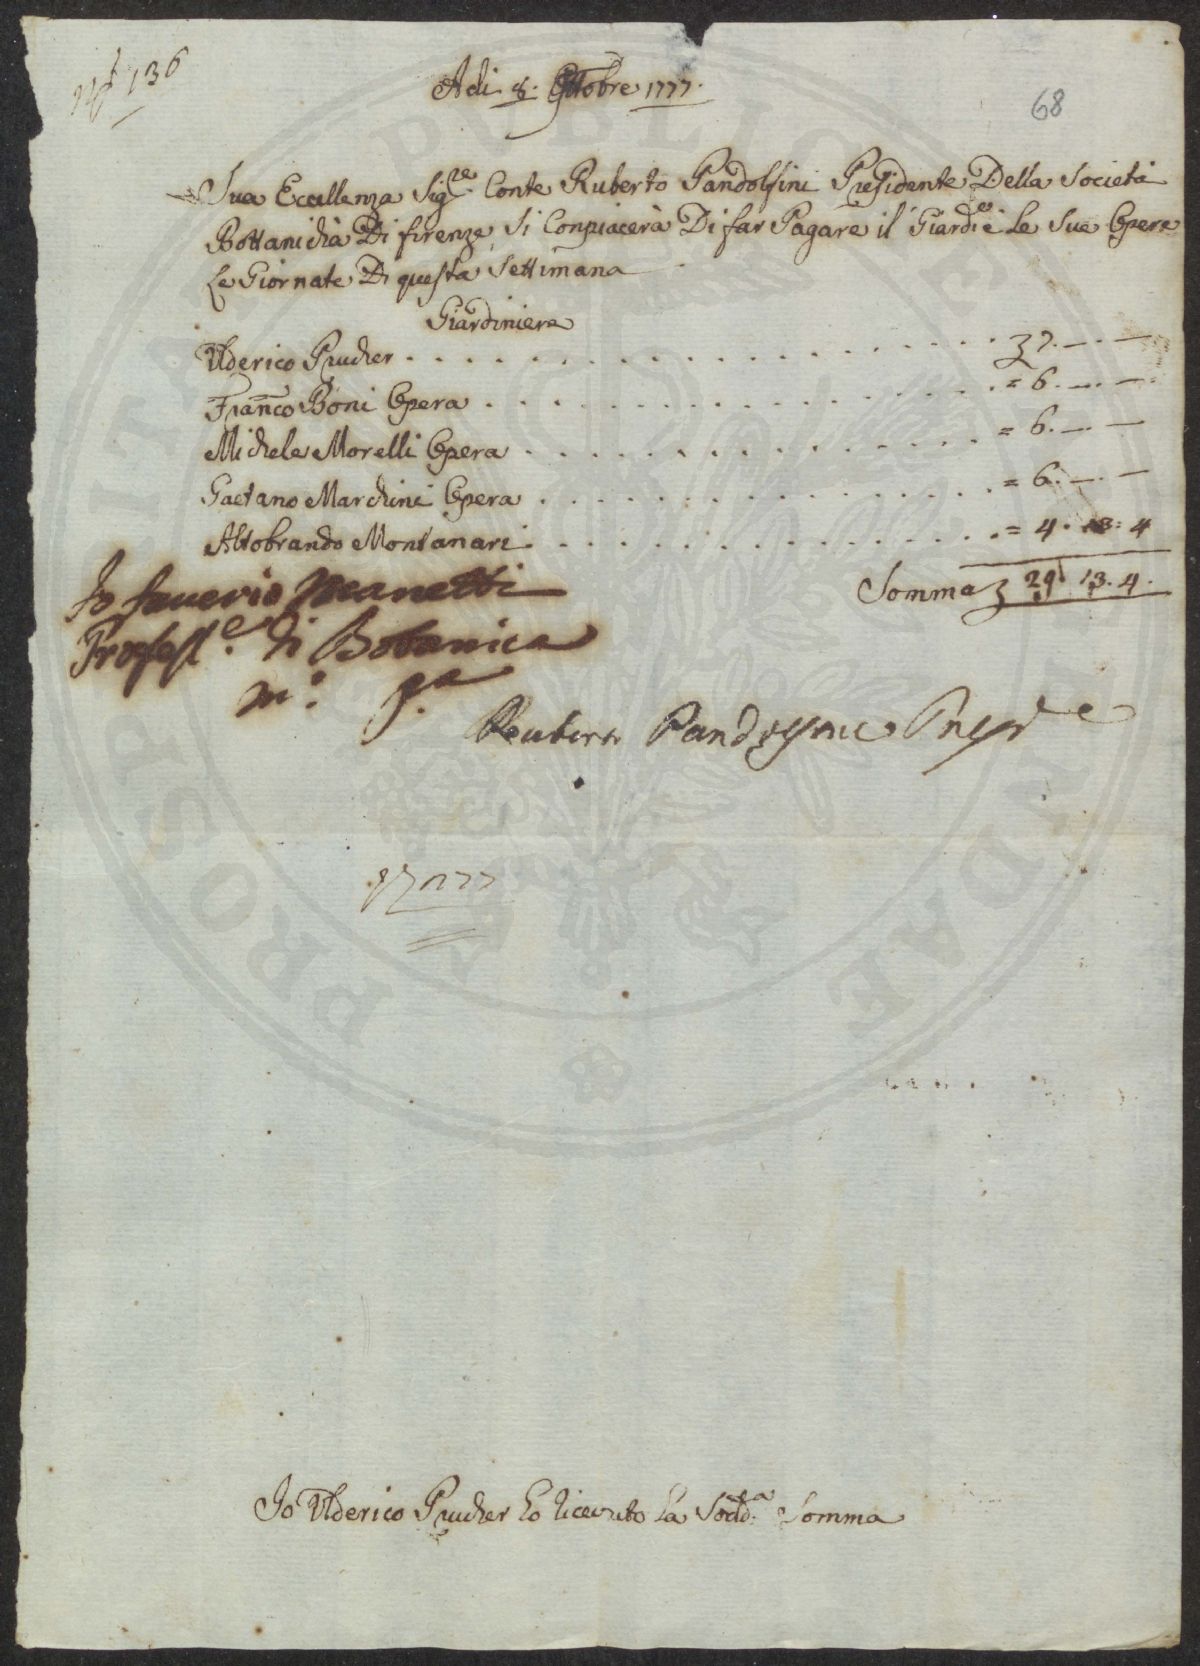 136
Adi 8. Ottobre 1777.
68
Sua Eccellenza Sig.re Conte Ruberto Pandolfini Presidente Della Società
Bottanicha Di firenze, Si Conpiacerà Di far Pagare il Giard.e e Le Sue Opere
Le Giornate Di questa Settimana
Giardiniere
Ulderico Prucher . . . 7. — . —
Franco Boni Opera . . . = 6. — . —
Michele Morelli Opera . . . = 6. — . —
Gaetano Marchini Opera . . . = 6. — . —
Altobrando Montanari . . . = 4. 13: 4
Somma 29 13. 4.
Io Saverio Manetti
Profess.e di Botanica
m.o p.a
Ruberto Pandolfini Presid.e
1777
Io Ulderico Prucher ho ricevuto La Sodd.a Somma
PROSPERITATI PUBLICAE AUGENDAE